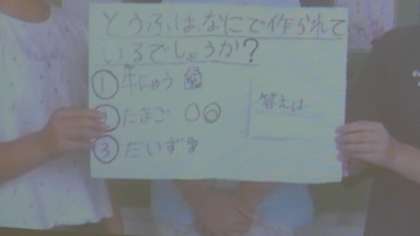 とうふはなにで作られて
いるでしょうか?
①牛にゅう
②たまご
③だいず
答えは